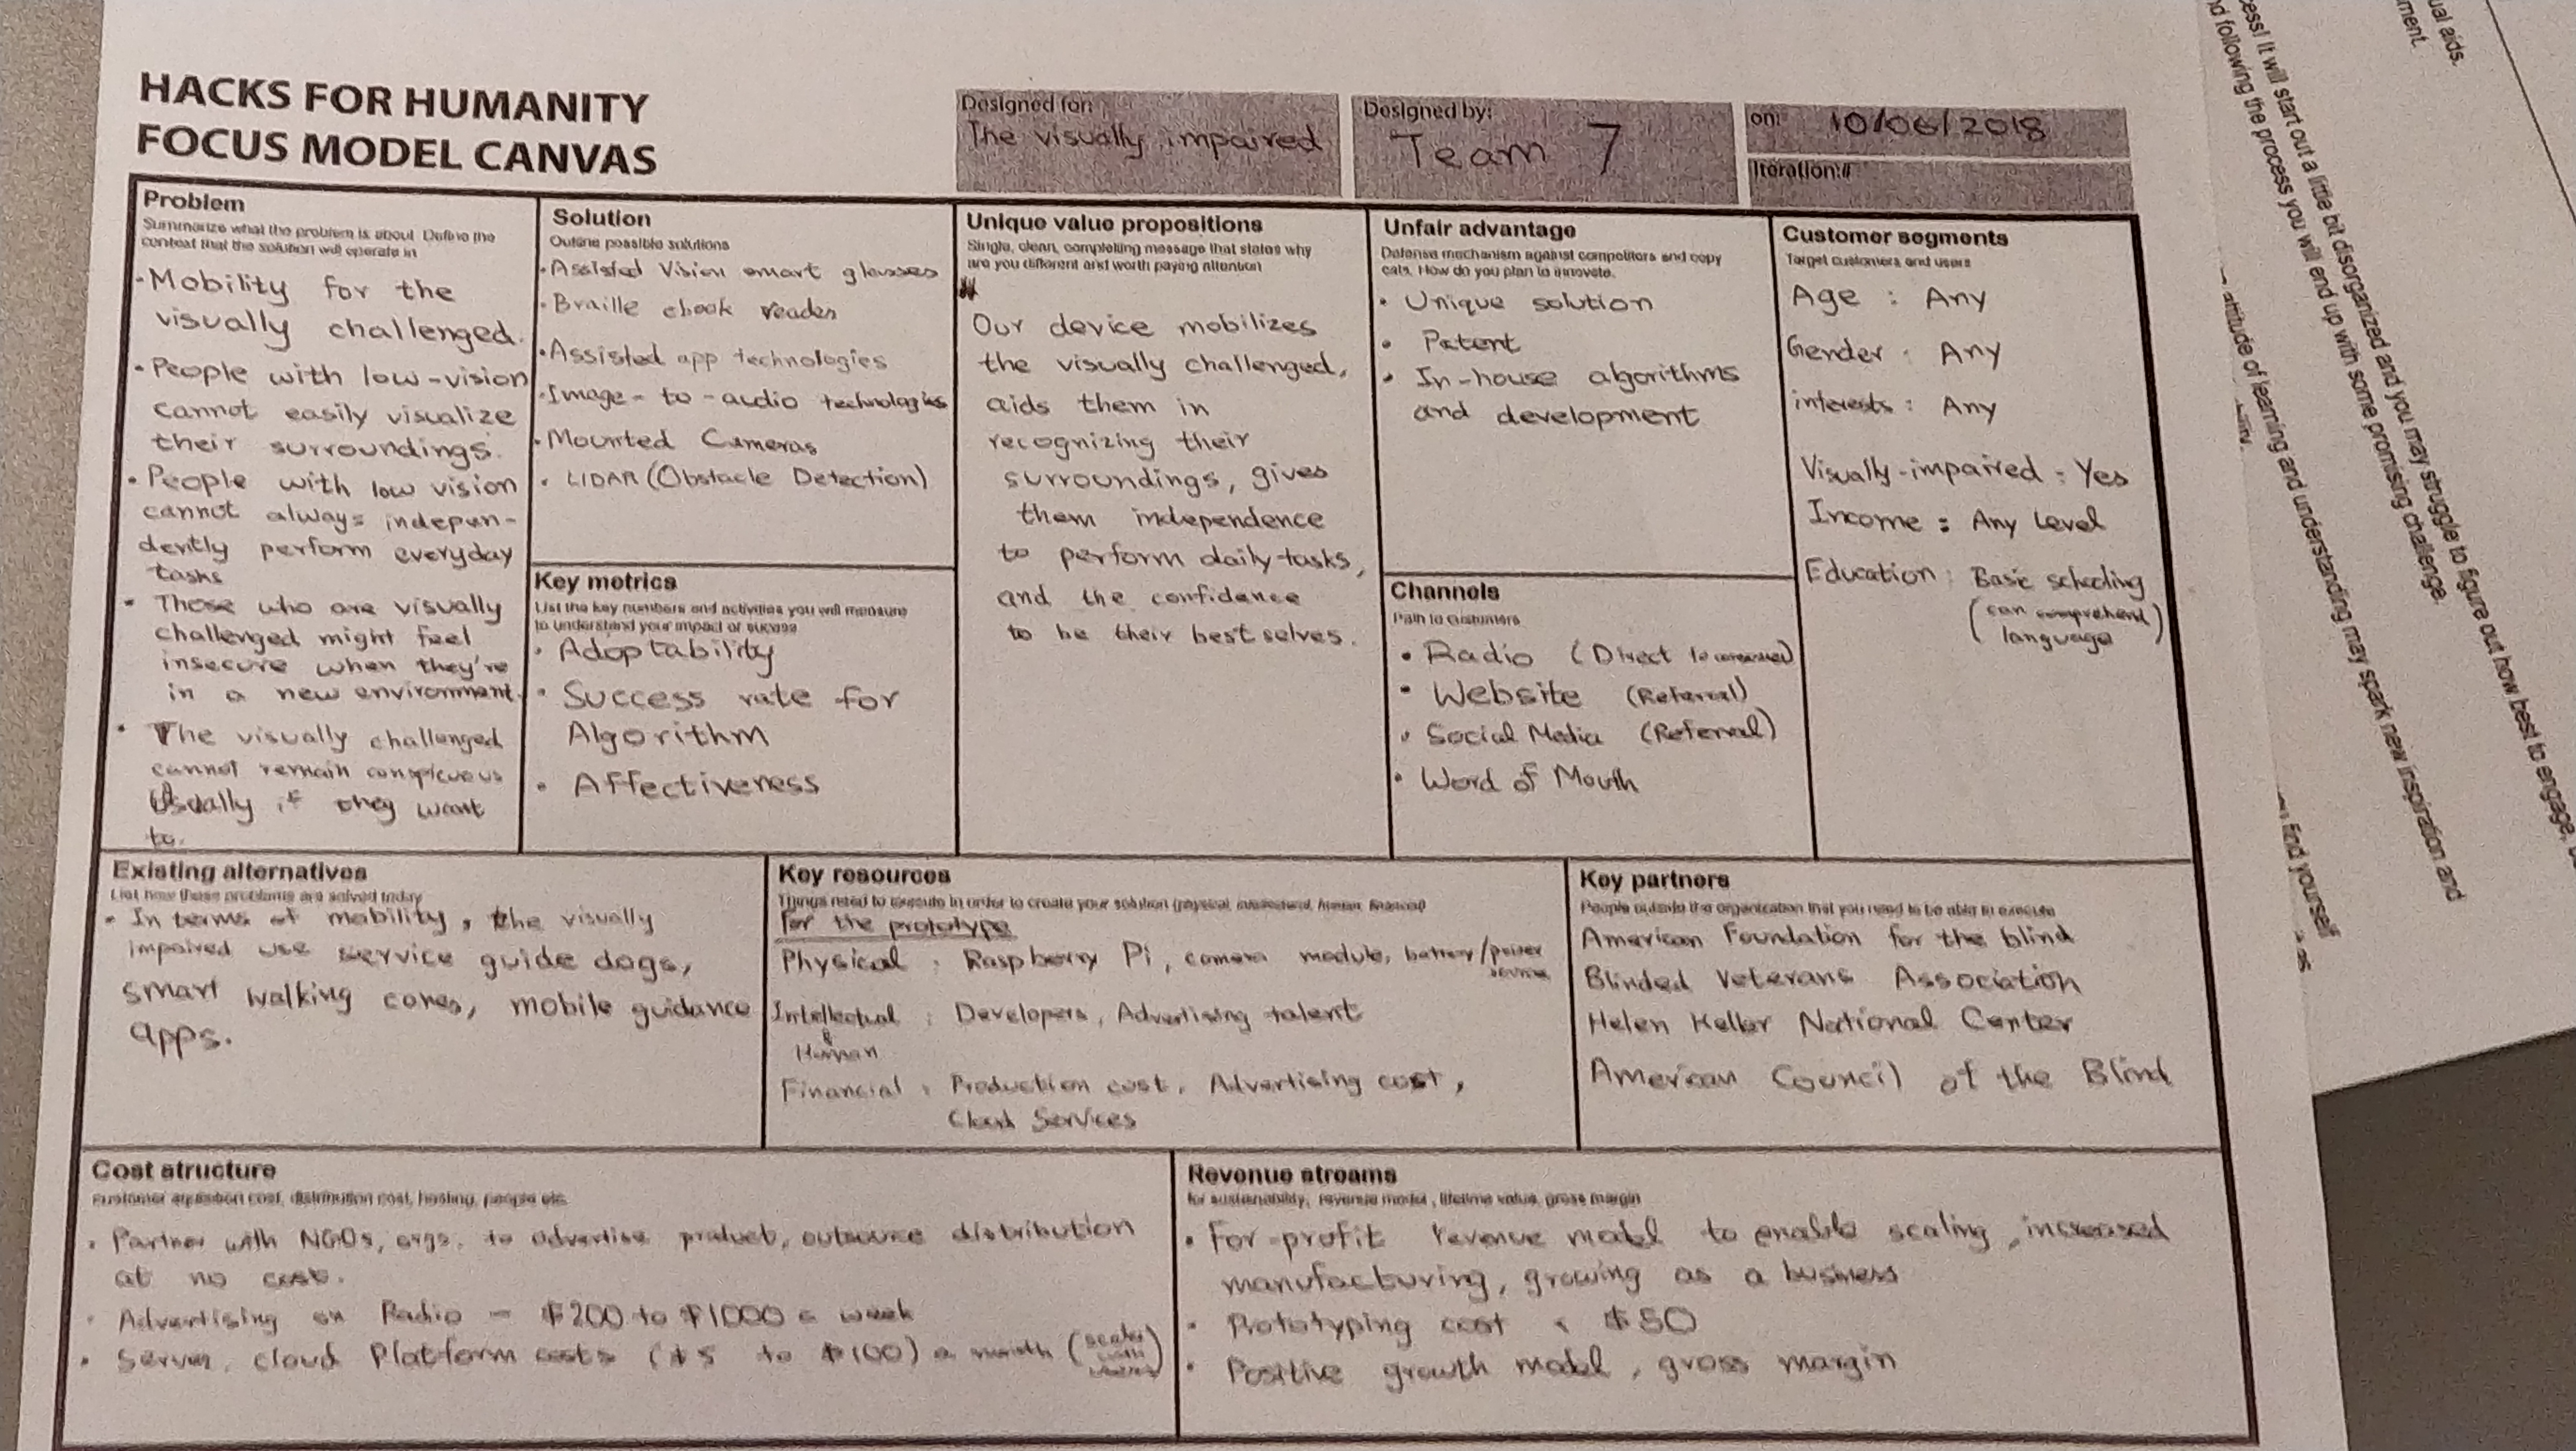 HACKS FOR HUMANITY
FOCUS MODEL CANVAS
Designed for:
The visually impaired
Designed by:
Team 7
on: 10/06/2018
Iteration:#
Problem
Summarize what the problem is about. Define the
context that the solution will operate in
• Mobility for the
visually challenged.
• People with low-vision
cannot easily visualize
their surroundings.
• People with low vision
cannot always indepen-
dently perform everyday
tasks
• Those who are visually
challenged might feel
insecure when they're
in a new environment.
• The visually challenged
cannot remain conspicuous
usually if they want
to.
Solution
Outline possible solutions
• Assisted Vision smart glasses
• Braille ebook reader
• Assisted app technologies
• Image-to-audio technologies
• Mounted Cameras
• LIDAR (Obstacle Detection)
Key metrics
List the key numbers and activities you will measure
to understand your impact or sucess
• Adoptability
• Success rate for
Algorithm
• Affectiveness
Unique value propositions
Single, clean, complelling message that states why
are you different and worth paying attention
Our device mobilizes
the visually challenged,
aids them in
recognizing their
surroundings, gives
them independence
to perform daily tasks,
and the confidence
to be their best selves.
Unfair advantage
Defense mechanism against competitors and copy
cats. How do you plan to innovate.
• Unique solution
• Patent
• In-house algorithms
and development
Channels
Path to customers
• Radio (Direct to
• Website (Referral)
• Social Media (Referral)
• Word of Mouth
Customer segments
Target customers and users
Age : Any
Gender : Any
interests : Any
Visually-impaired : Yes
Income : Any Level
Education : Basic schooling
(can comprehend
language)
Existing alternatives
List how these problems are solved today
• In terms of mobility, the visually
impaired use service guide dogs,
smart walking canes, mobile guidance
apps.
Key resources
Things need to execute in order to create your solution (physical, intellectual, human, financial)
For the prototype
Physical : Raspberry Pi, camera module, battery/power
source
Intellectual : Developers, Advertising talent
&
Human
Financial : Production cost, Advertising cost,
Cloud Services
Key partners
People outside the organization that you need to be able to execute
American Foundation for the blind
Blinded Veterans Association
Helen Keller National Center
American Council of the Blind
Cost structure
customer aquisition cost, distribution cost, hosting, people etc.
• Partner with NGOs, orgs. to advertise product, outsource distribution
at no cost.
• Advertising on Radio - $200 to $1000 a week
• Server, cloud Platform costs ($5 to $100) a month (scales
with
users)
Revenue streams
for sustainability, revenue model, lifetime value, gross margin
• For-profit revenue model to enable scaling, increased
manufacturing, growing as a business
• Prototyping cost < $50
• Positive growth model, gross margin
ual aids.
ment.
cess! It will start out a little bit disorganized and you may struggle to figure out how best to engage,
d following the process you will end up with some promising challenge.
attitude of learning and understanding may spark new inspiration and
find yourself